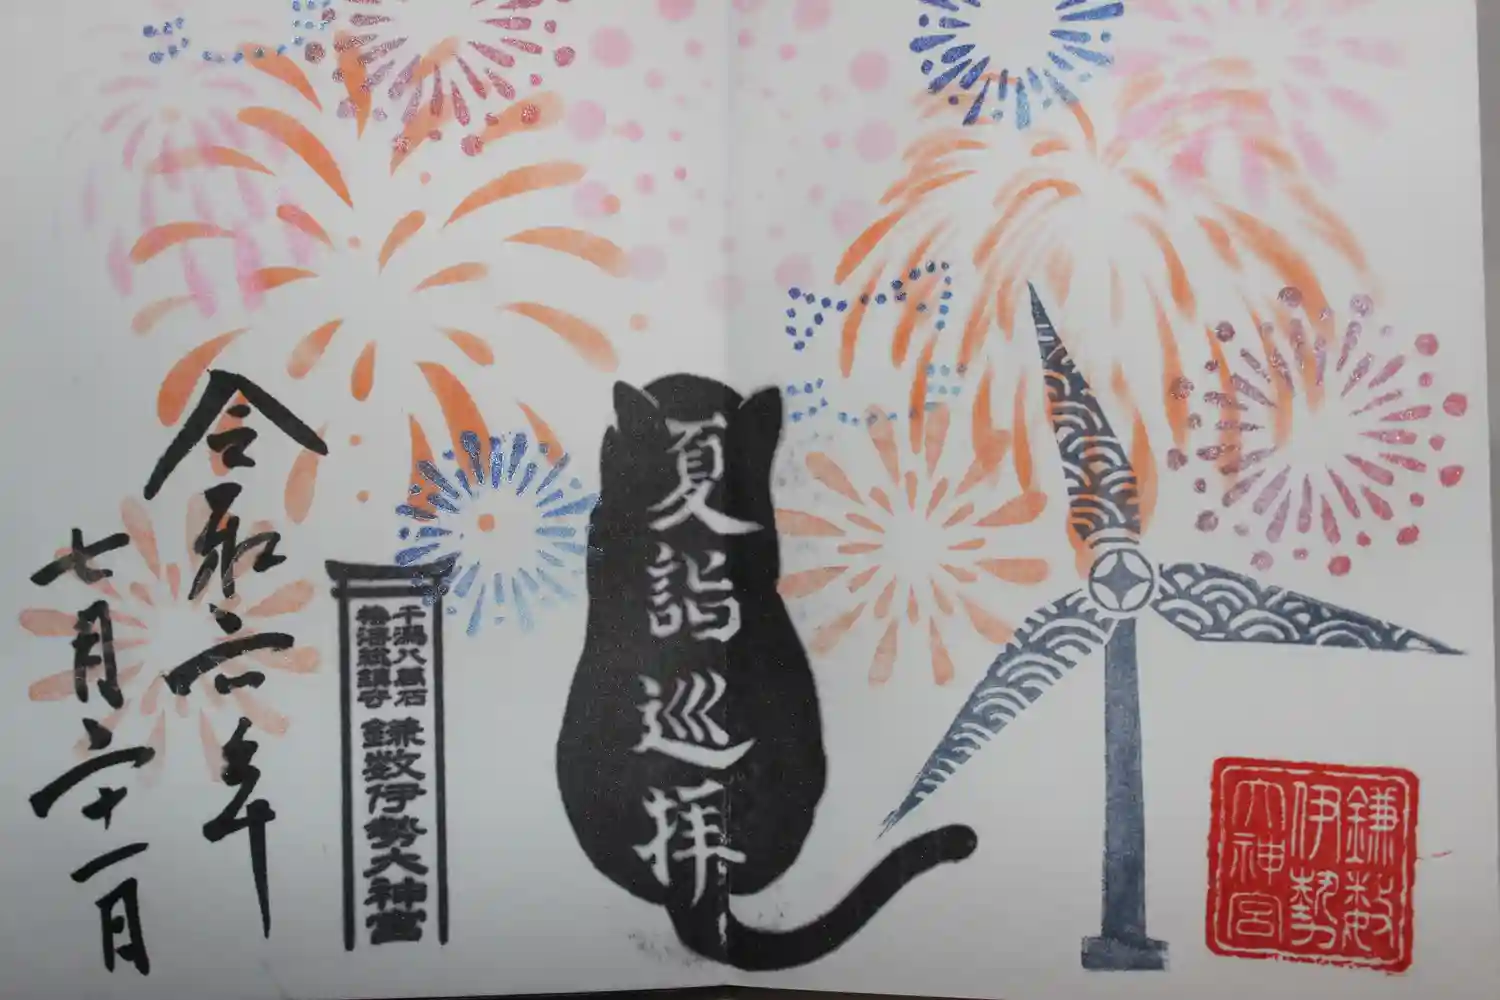 夏詣巡拝
鎌数
伊勢
大神宮
干潟八萬石
椿海総鎮守
鎌数伊勢大神宮
令和六年
七月二十一日